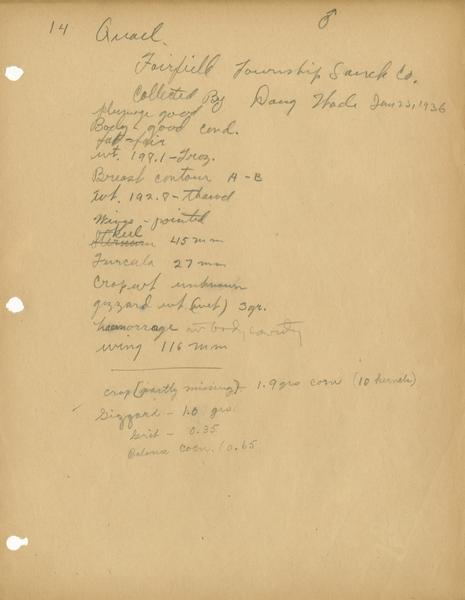 14 Quail ♂
Fairfield Township Sauk Co.
Collected By Doug Wade Jan 23, 1936
plumage good
Body - good cond.
fat - fair
wt. 198.1 - Froz.
Breast contour A - B
wt. 192.8 - thawed
Wings - pointed
keel
Sternum 45 mm
Furcula 27 mm
Crop wt unknown
gizzard wt (wet) 3gr.
haemorrage in body cavity
wing 116 mm
crop (partly missing) - 1.9 grs corn (10 kernels)
Gizzard - 1.0 grs.
Grit - 0.35
corn 0.65